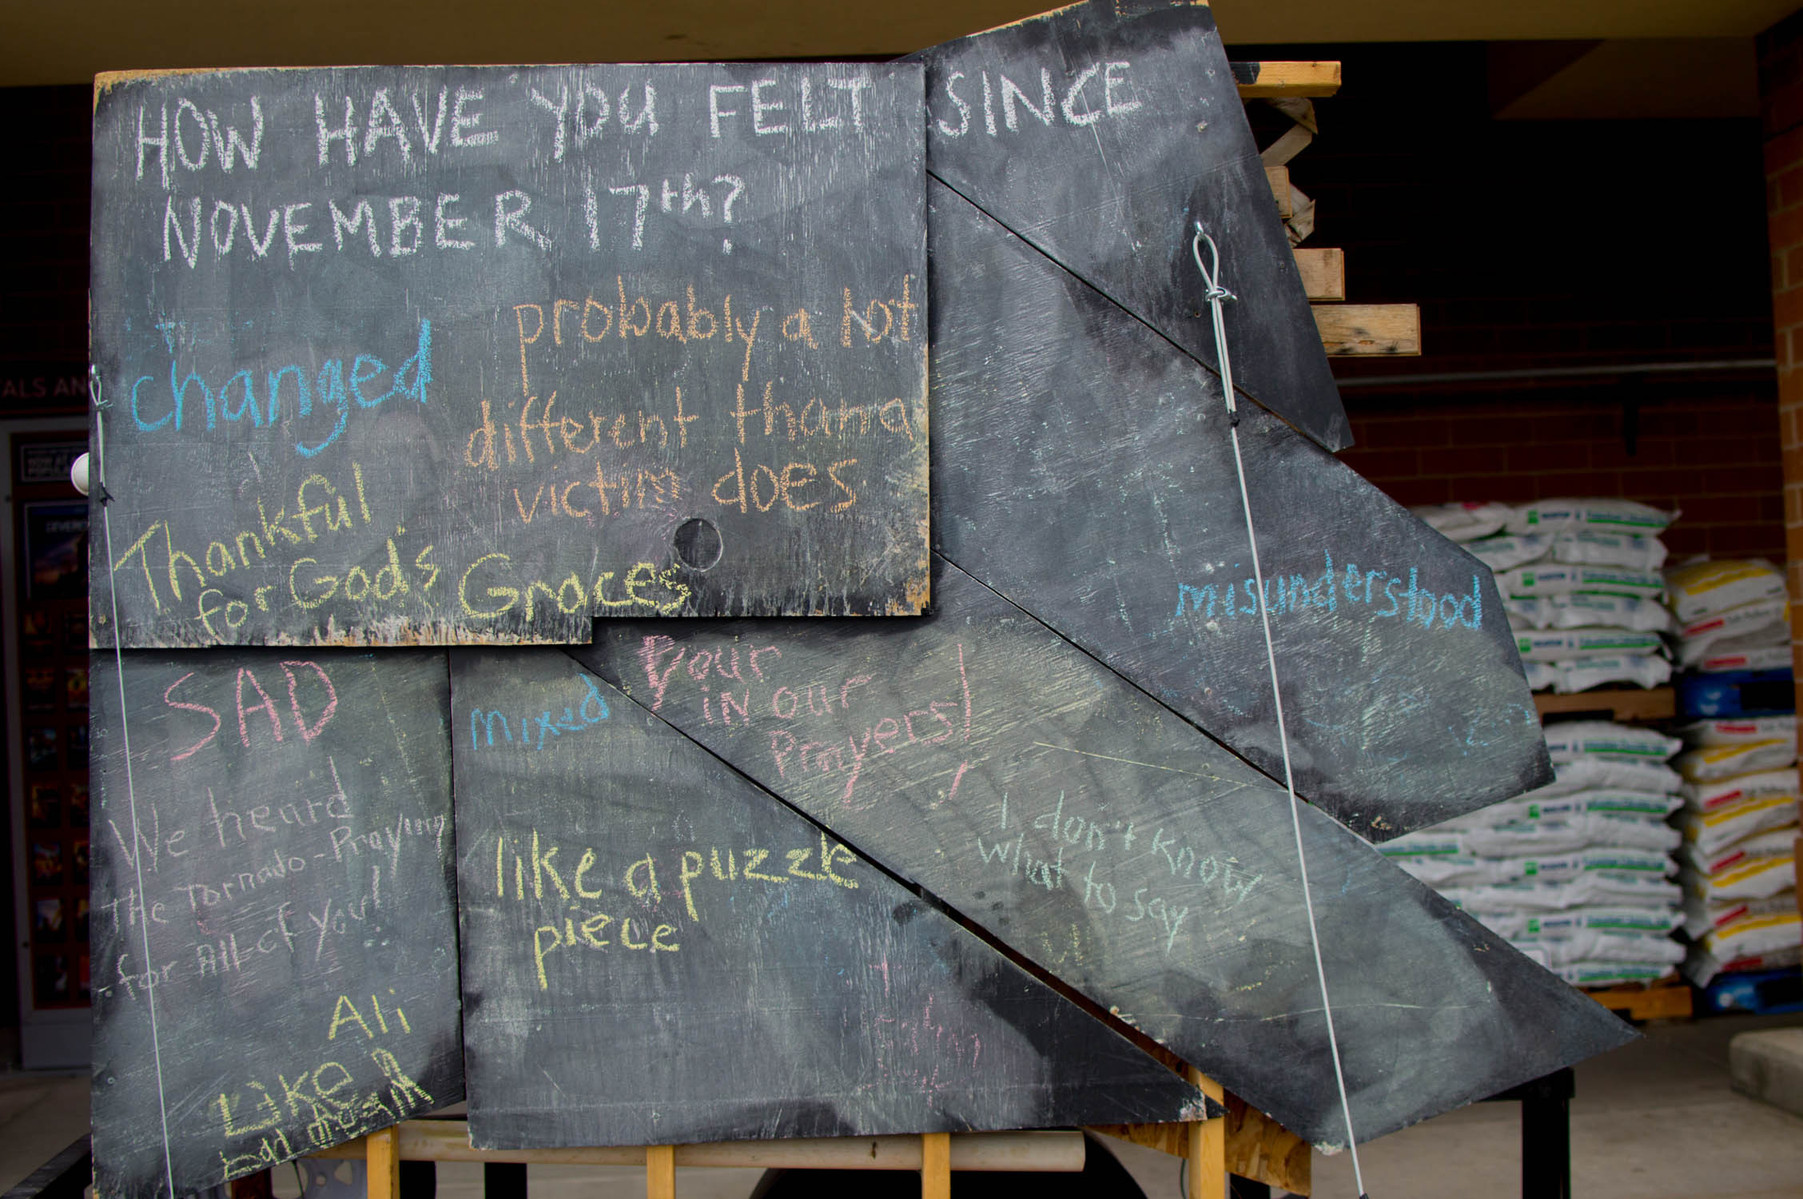 HOW HAVE YOU FELT SINCE
NOVEMBER 17th?
changed
probably a lot
different than a
victim does
Thankful
for God's Graces
SAD
We heard
The Tornado-Praying
for All of You!
Ali
Like
bad dream
mixed
your
in our
Prayers!
like a puzzle
piece
I don't know
what to say
misunderstood